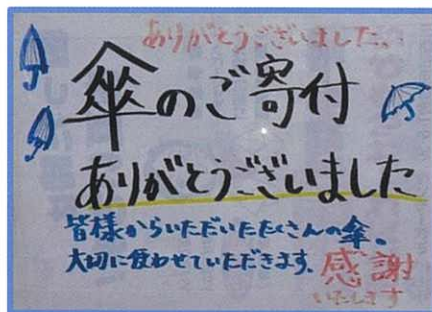 ありがとうございました。
傘のご寄付
ありがとうございました
皆様からいただいたたくさんの傘。
大切に使わせていただきます。
感謝
いたします